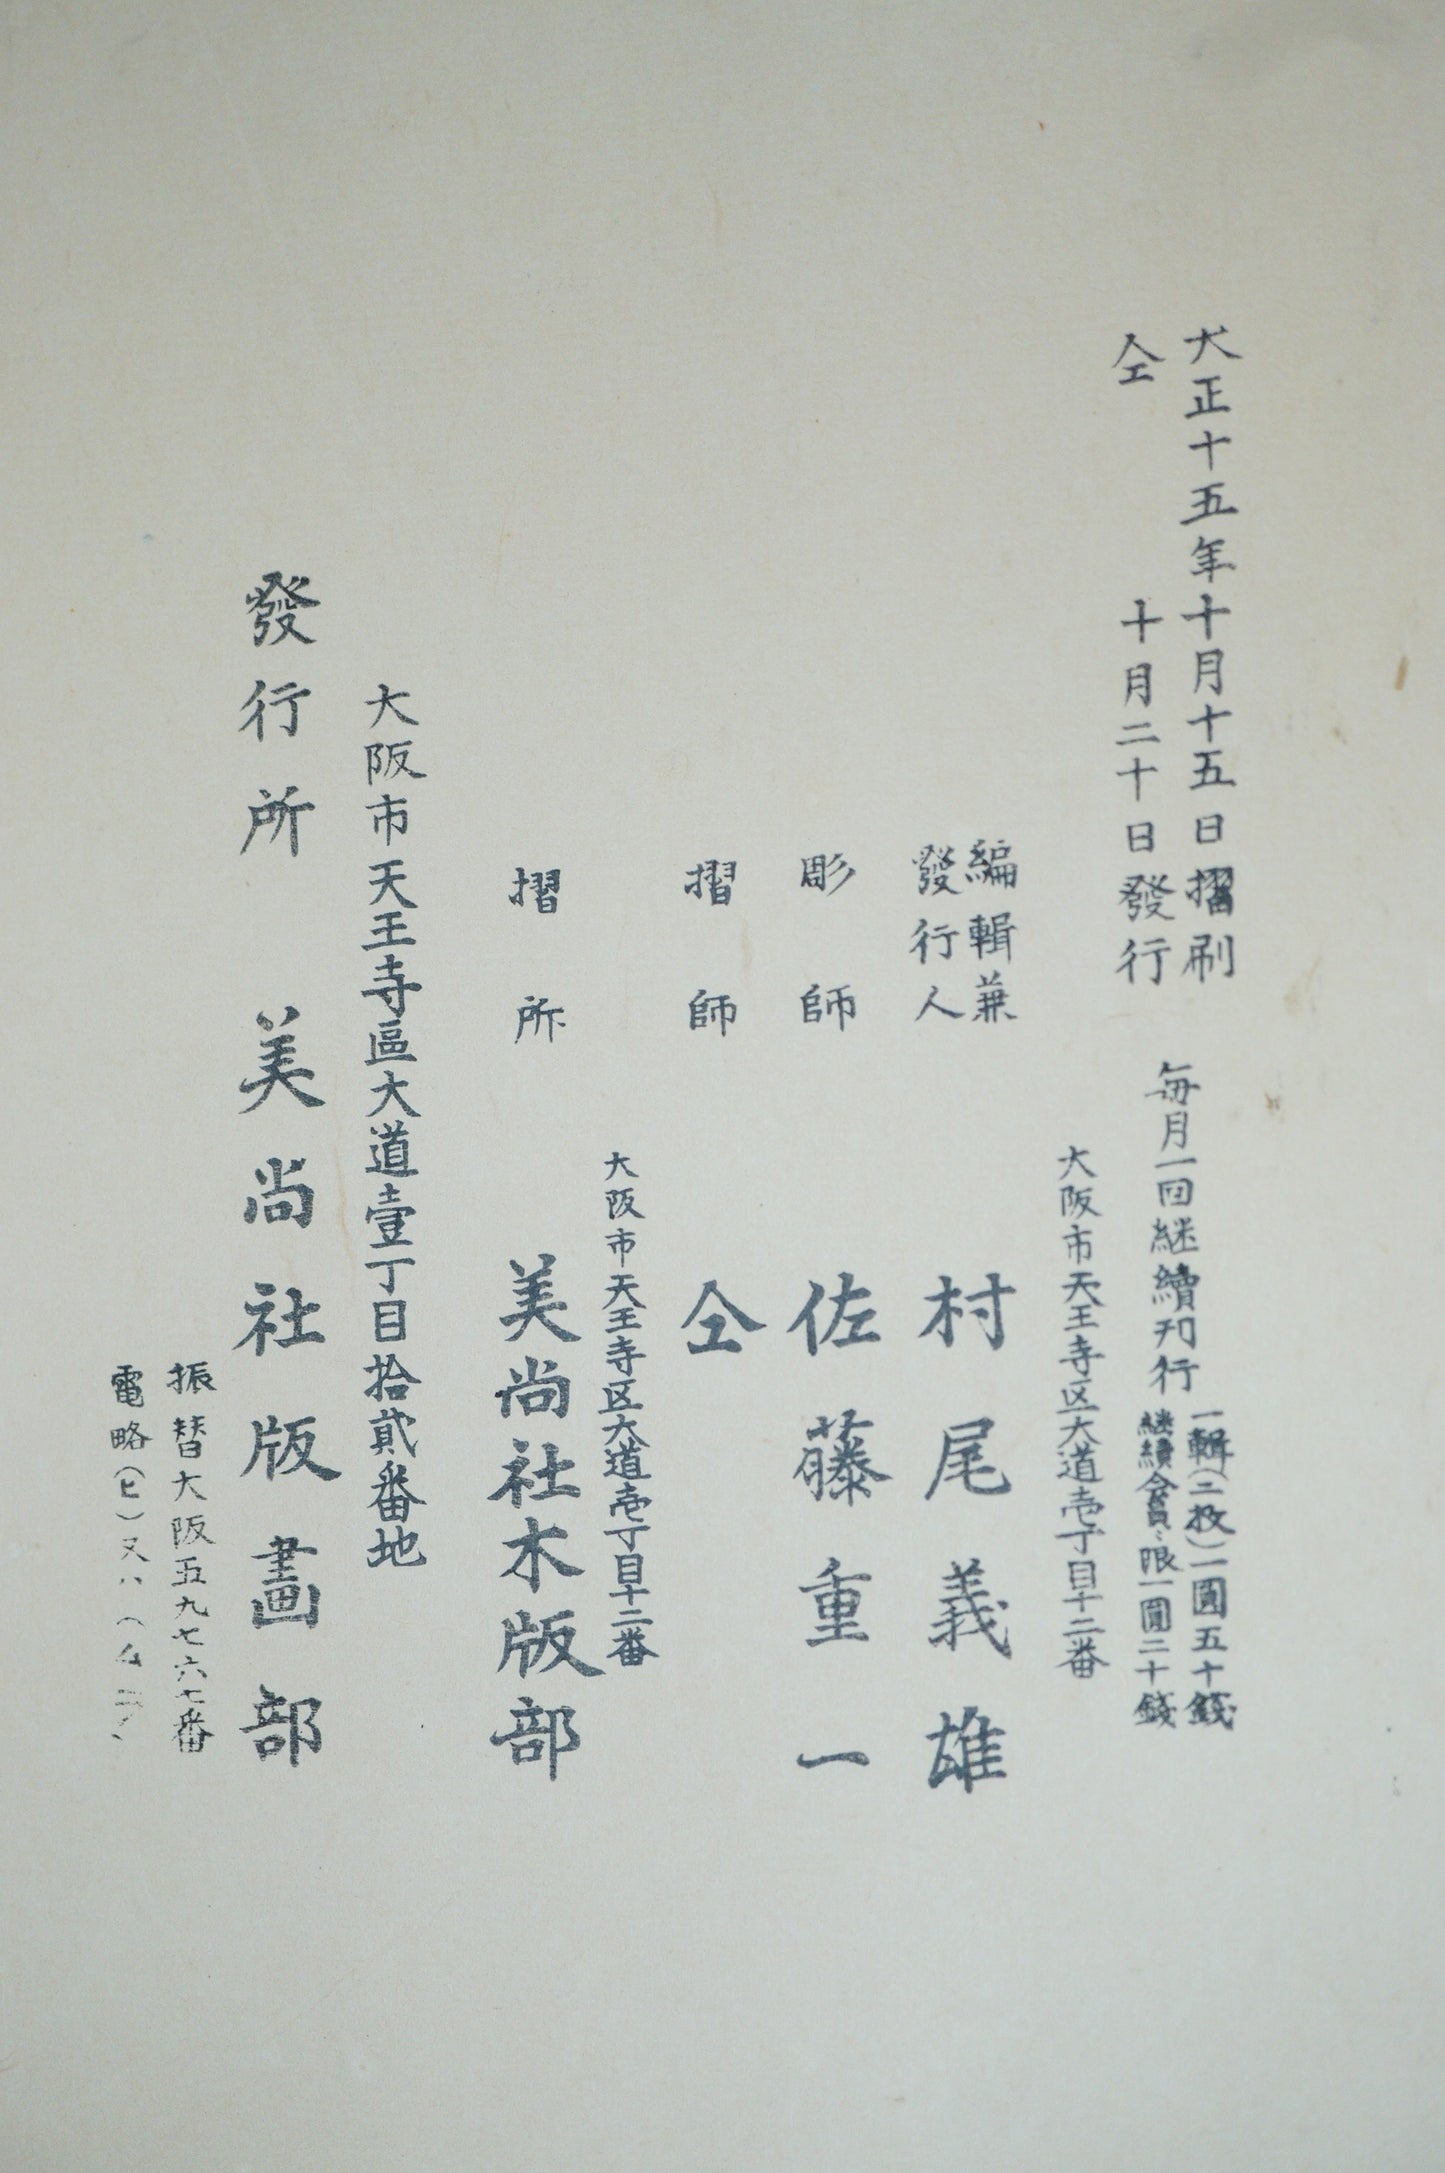 大正十五年十月十五日摺刷
仝　十月二十日發行
毎月一回継續刊行
一輯(三枚)一圓五十錢
継續會員ニ限一圓二十錢
大阪市天王寺区大道壱丁目十二番
編輯兼
發行人
村尾義雄
彫師　佐藤重一
摺師　仝
大阪市天王寺区大道壱丁目十二番
摺所　美尚社木版部
大阪市天王寺區大道壹丁目拾貳番地
發行所　美尚社版畫部
振替大阪五九七六七番
電略(ヒ)又ハ